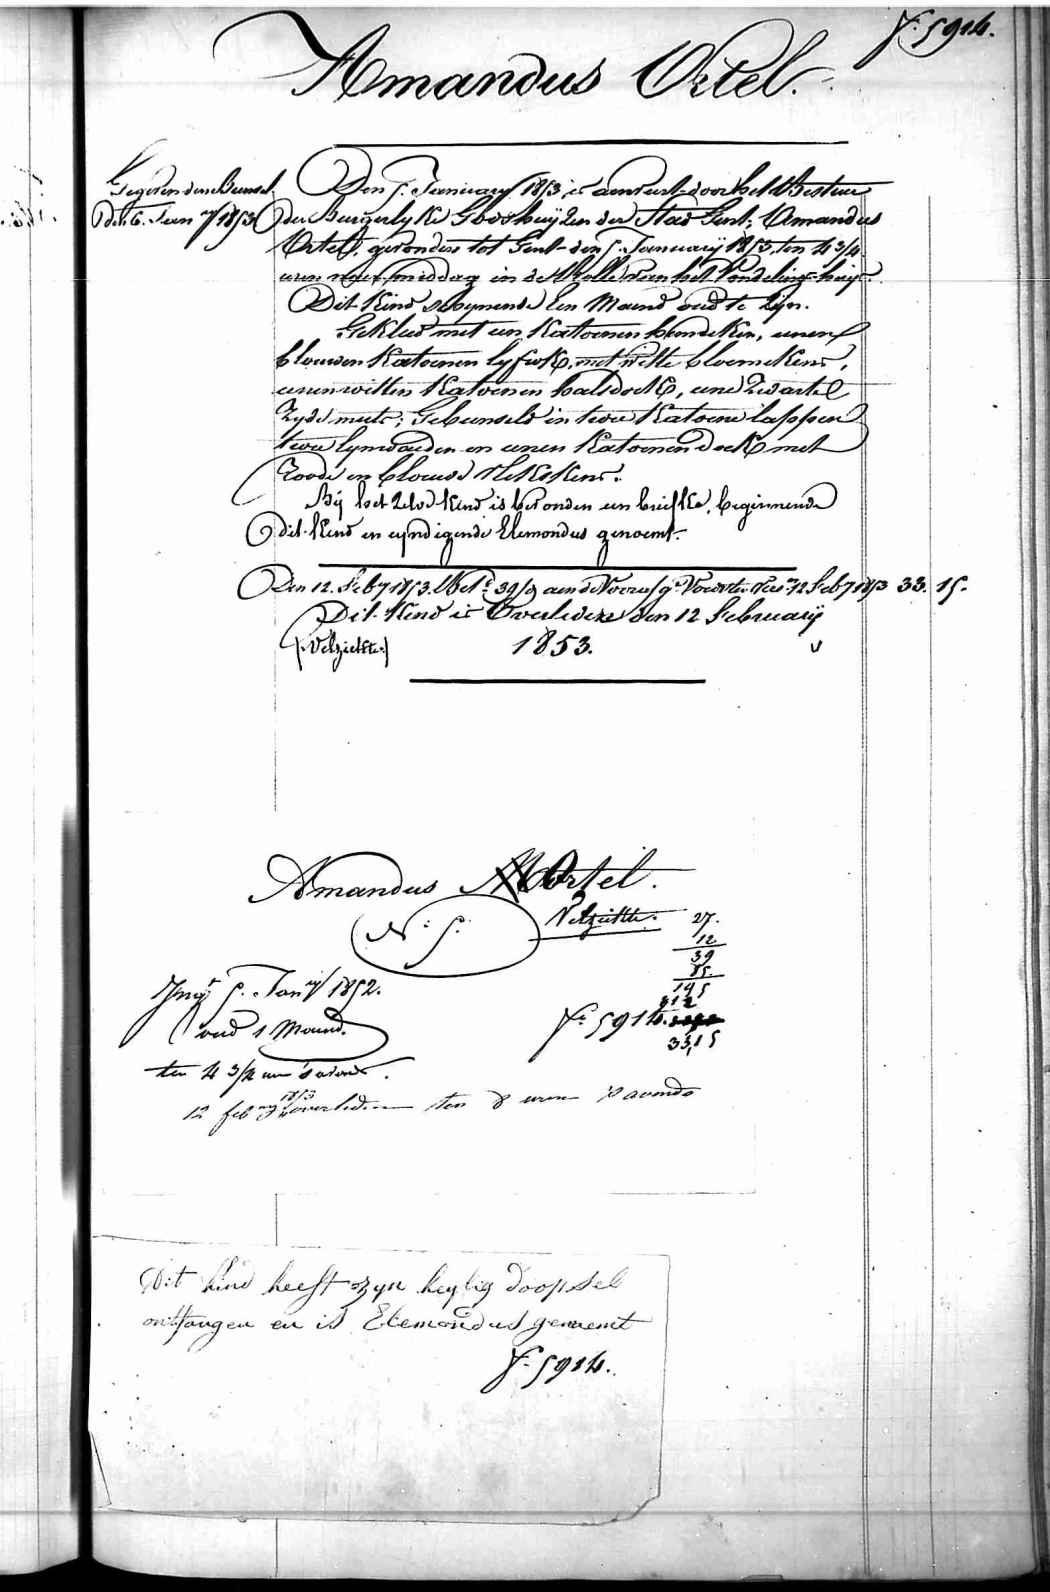 f. 5914.
Amandus Ortel.
Gegeven den Bundel
den 6. Jan.ry 1853
Den 5. January 1853 is aenveert door het Bestuur
der Burgerlyke Godshuyzen der Stad Gent; Amandus
Ortel, gevonden tot Gent den 5. January 1853, ten 4 3/4
uren naermiddag in de Rolle van het Vondeling-huys.
Dit Kind schynende Een Maend oud te zyn.
Gekleed met een Katoenen hemdeken, eenen
blauwen Katoenen lyfrok, met witte bloemekens,
eenen witten Katoenen halsdoek, eene Zwarte
Zyde muts; Gebunseld in twee Katoene lappen
twee lynwaeden en eenen Katoenen doek met
Roode en blauwe Vlekskens.
By het Zelve Kind is bevonden een briefke, beginnende
dit Kind en eyndigende Elemondus genoemt.
Den 12. Feb.ry 1853. 39/ aen de 12 Feb.ry 1853 33. 15.
Dit Kind is Overleden den 12 February
1853.
Amandus Ortel.
N.° 5.
27.
12
39
85.
145
912
f.° 5914.
33,15
Ing.t 5. Jan.ry 1852.
oud 1 Maend.
ten 4 3/4 uren 's avonds.
12 feb.ry 1853 overleden ten 8 uren 's avonds
Dit kind heeft zyn heylig doopsel
ontfangen en is Elemondus genaemt
f. 5914.